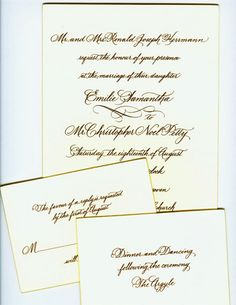 Mr. and Mrs. Ronald Joseph Herrmann
request the honour of your presence
at the marriage of their daughter
Emilie Samantha
to
Mr. Christopher Noel Petty
Saturday, the eighteenth of August
The favour of a reply is requested
by the first of August
M
will
Dinner and Dancing
following the ceremony
The Argyle